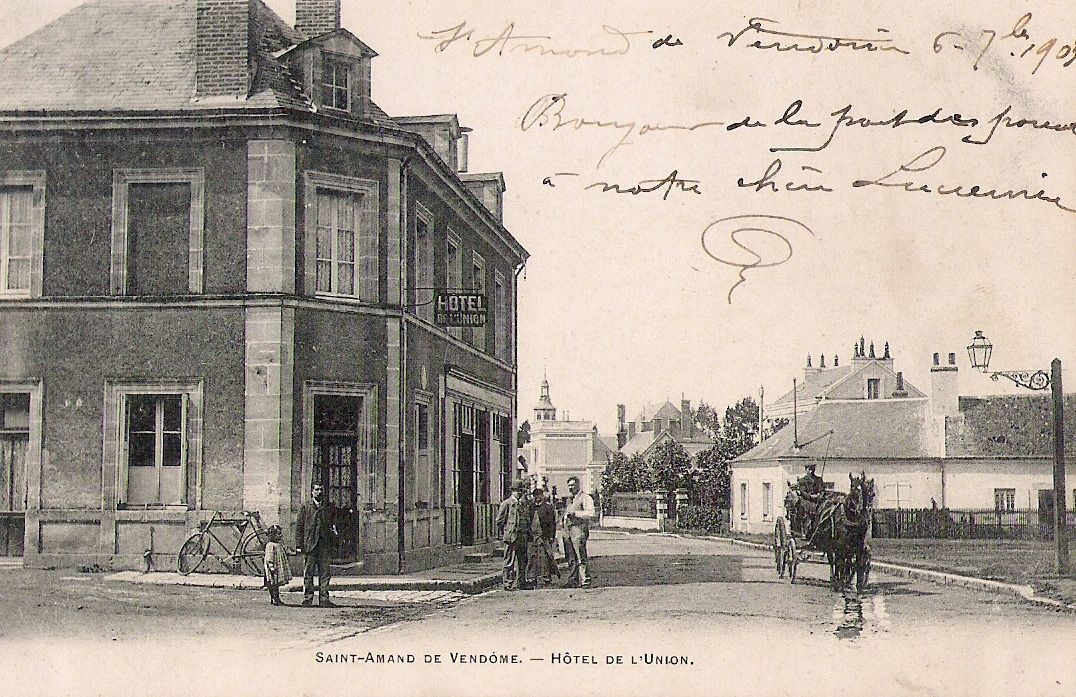 St Amand de Vendôme 6-7bre 190
Bonjour de la part des
à notre
HÔTEL
DE L'UNION
SAINT-AMAND DE VENDÔME. — HÔTEL DE L'UNION.